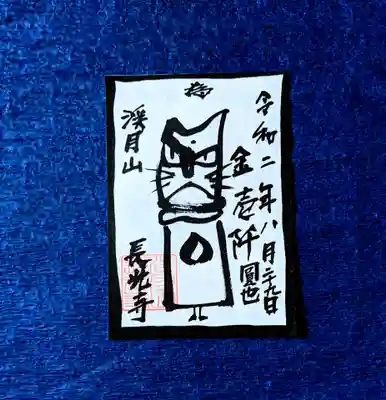 令和二年八月二十九日
金壱阡圓也
渓月山
長光寺